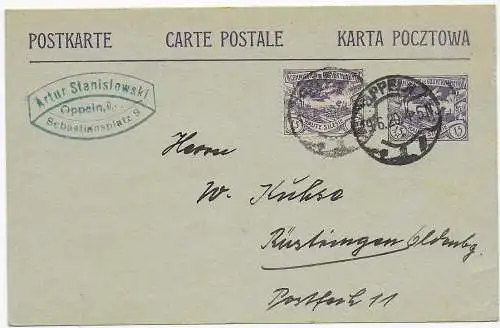 POSTKARTE CARTE POSTALE KARTA POCZTOWA
Artur Stanislowski
Oppeln,
Sebastiansplatz 9
HAUTE SILÉSIE
15
OPPELN
Herrn
W. Kuhse
Rüstringen Oldenbg.
Postfach 11